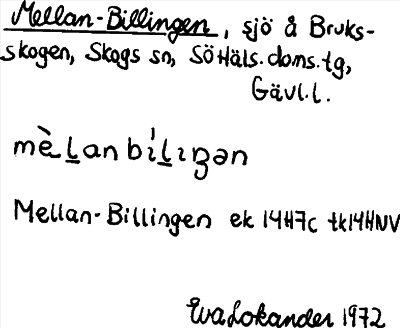 Mellan-Billingen, sjö å Bruks-
skogen, Skogs sn, SöHäls.doms.tg,
Gävl.l.
mèḻanbíḻıŋən
Mellan-Billingen ek 14H7c tk14HNV
Eva Lokander 1972